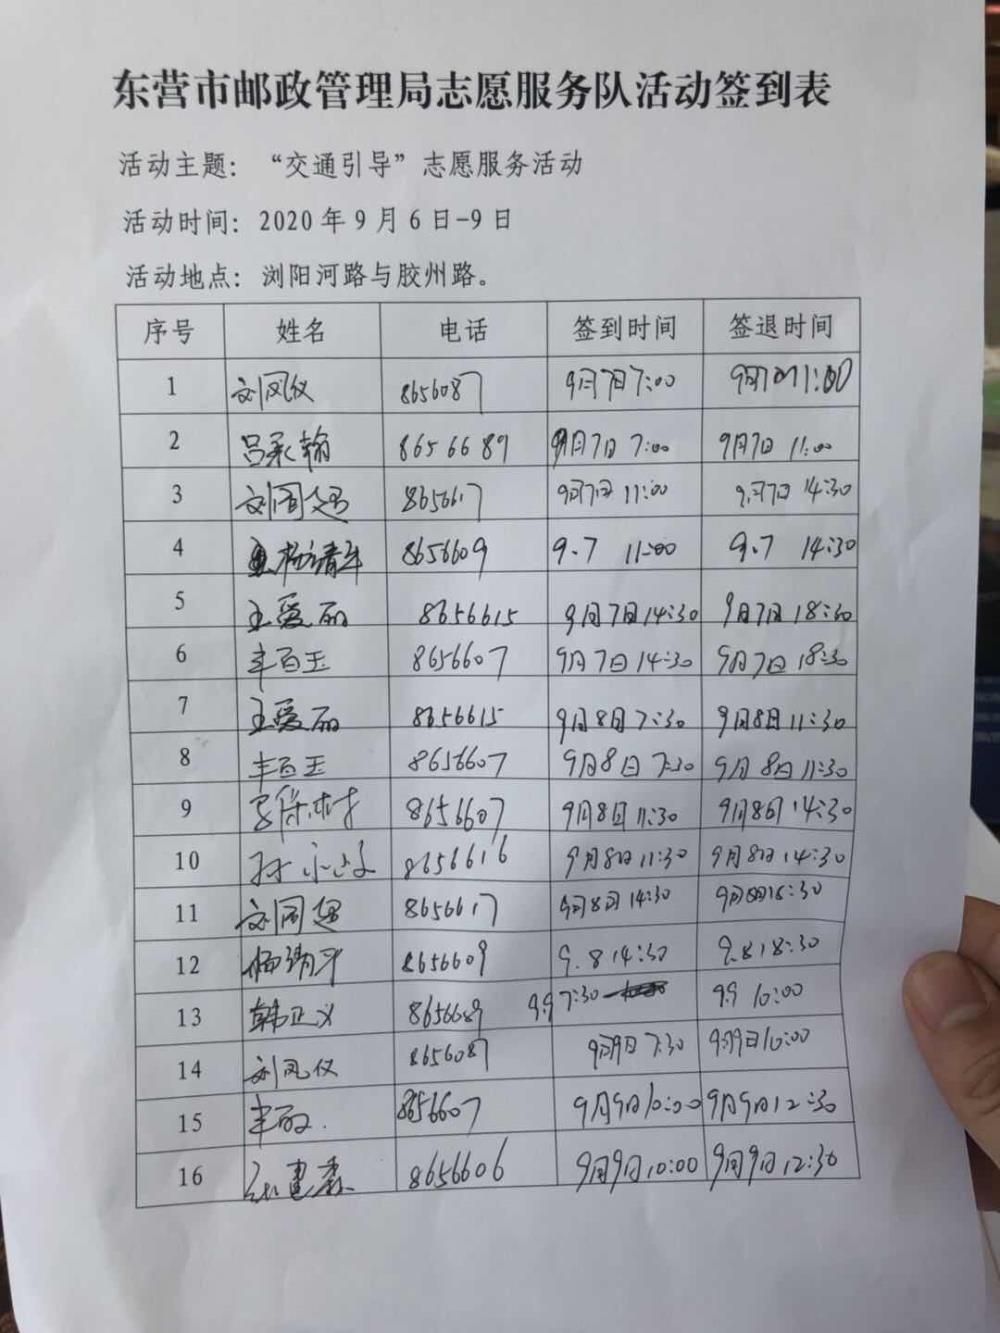 东营市邮政管理局志愿服务队活动签到表
活动主题：“交通引导”志愿服务活动
活动时间：2020年9月6日-9日
活动地点：浏阳河路与胶州路。
序号 姓名 电话 签到时间 签退时间
1 刘凤仪 8656087 9月7日7:00 9月7日11:00
2 吕承翰 8656689 9月7日 7:00 9月7日 11:00
3 刘同超 8656617 9月7日 11:00 9月7日 14:30
4 杨清平 8656609 9.7 11:00 9.7 14:30
5 王爱丽 8656615 9月7日14:30 9月7日18:30
6 丰百玉 8656607 9月7日14:30 9月7日 18:30
7 王爱丽 8656615 9月8日7:30 9月8日11:30
8 丰百玉 8656607 9月8日 7:30 9月8日11:30
9 8656607 9月8日11:30 9月8日14:30
10 孙 8656616 9月8日11:30 9月8日14:30
11 刘同超 8656617 9月8日14:30 9月8日18:30
12 杨清平 8656609 9.8 14:30 9.8 18:30
13 韩正义 8656689 9.9 7:30 9.9 10:00
14 刘凤仪 8656087 9月9日 7:30 9月9日10:00
15 丰 8656607 9月9日10:00 9月9日12:30
16 8656606 9月9日10:00 9月9日12:30